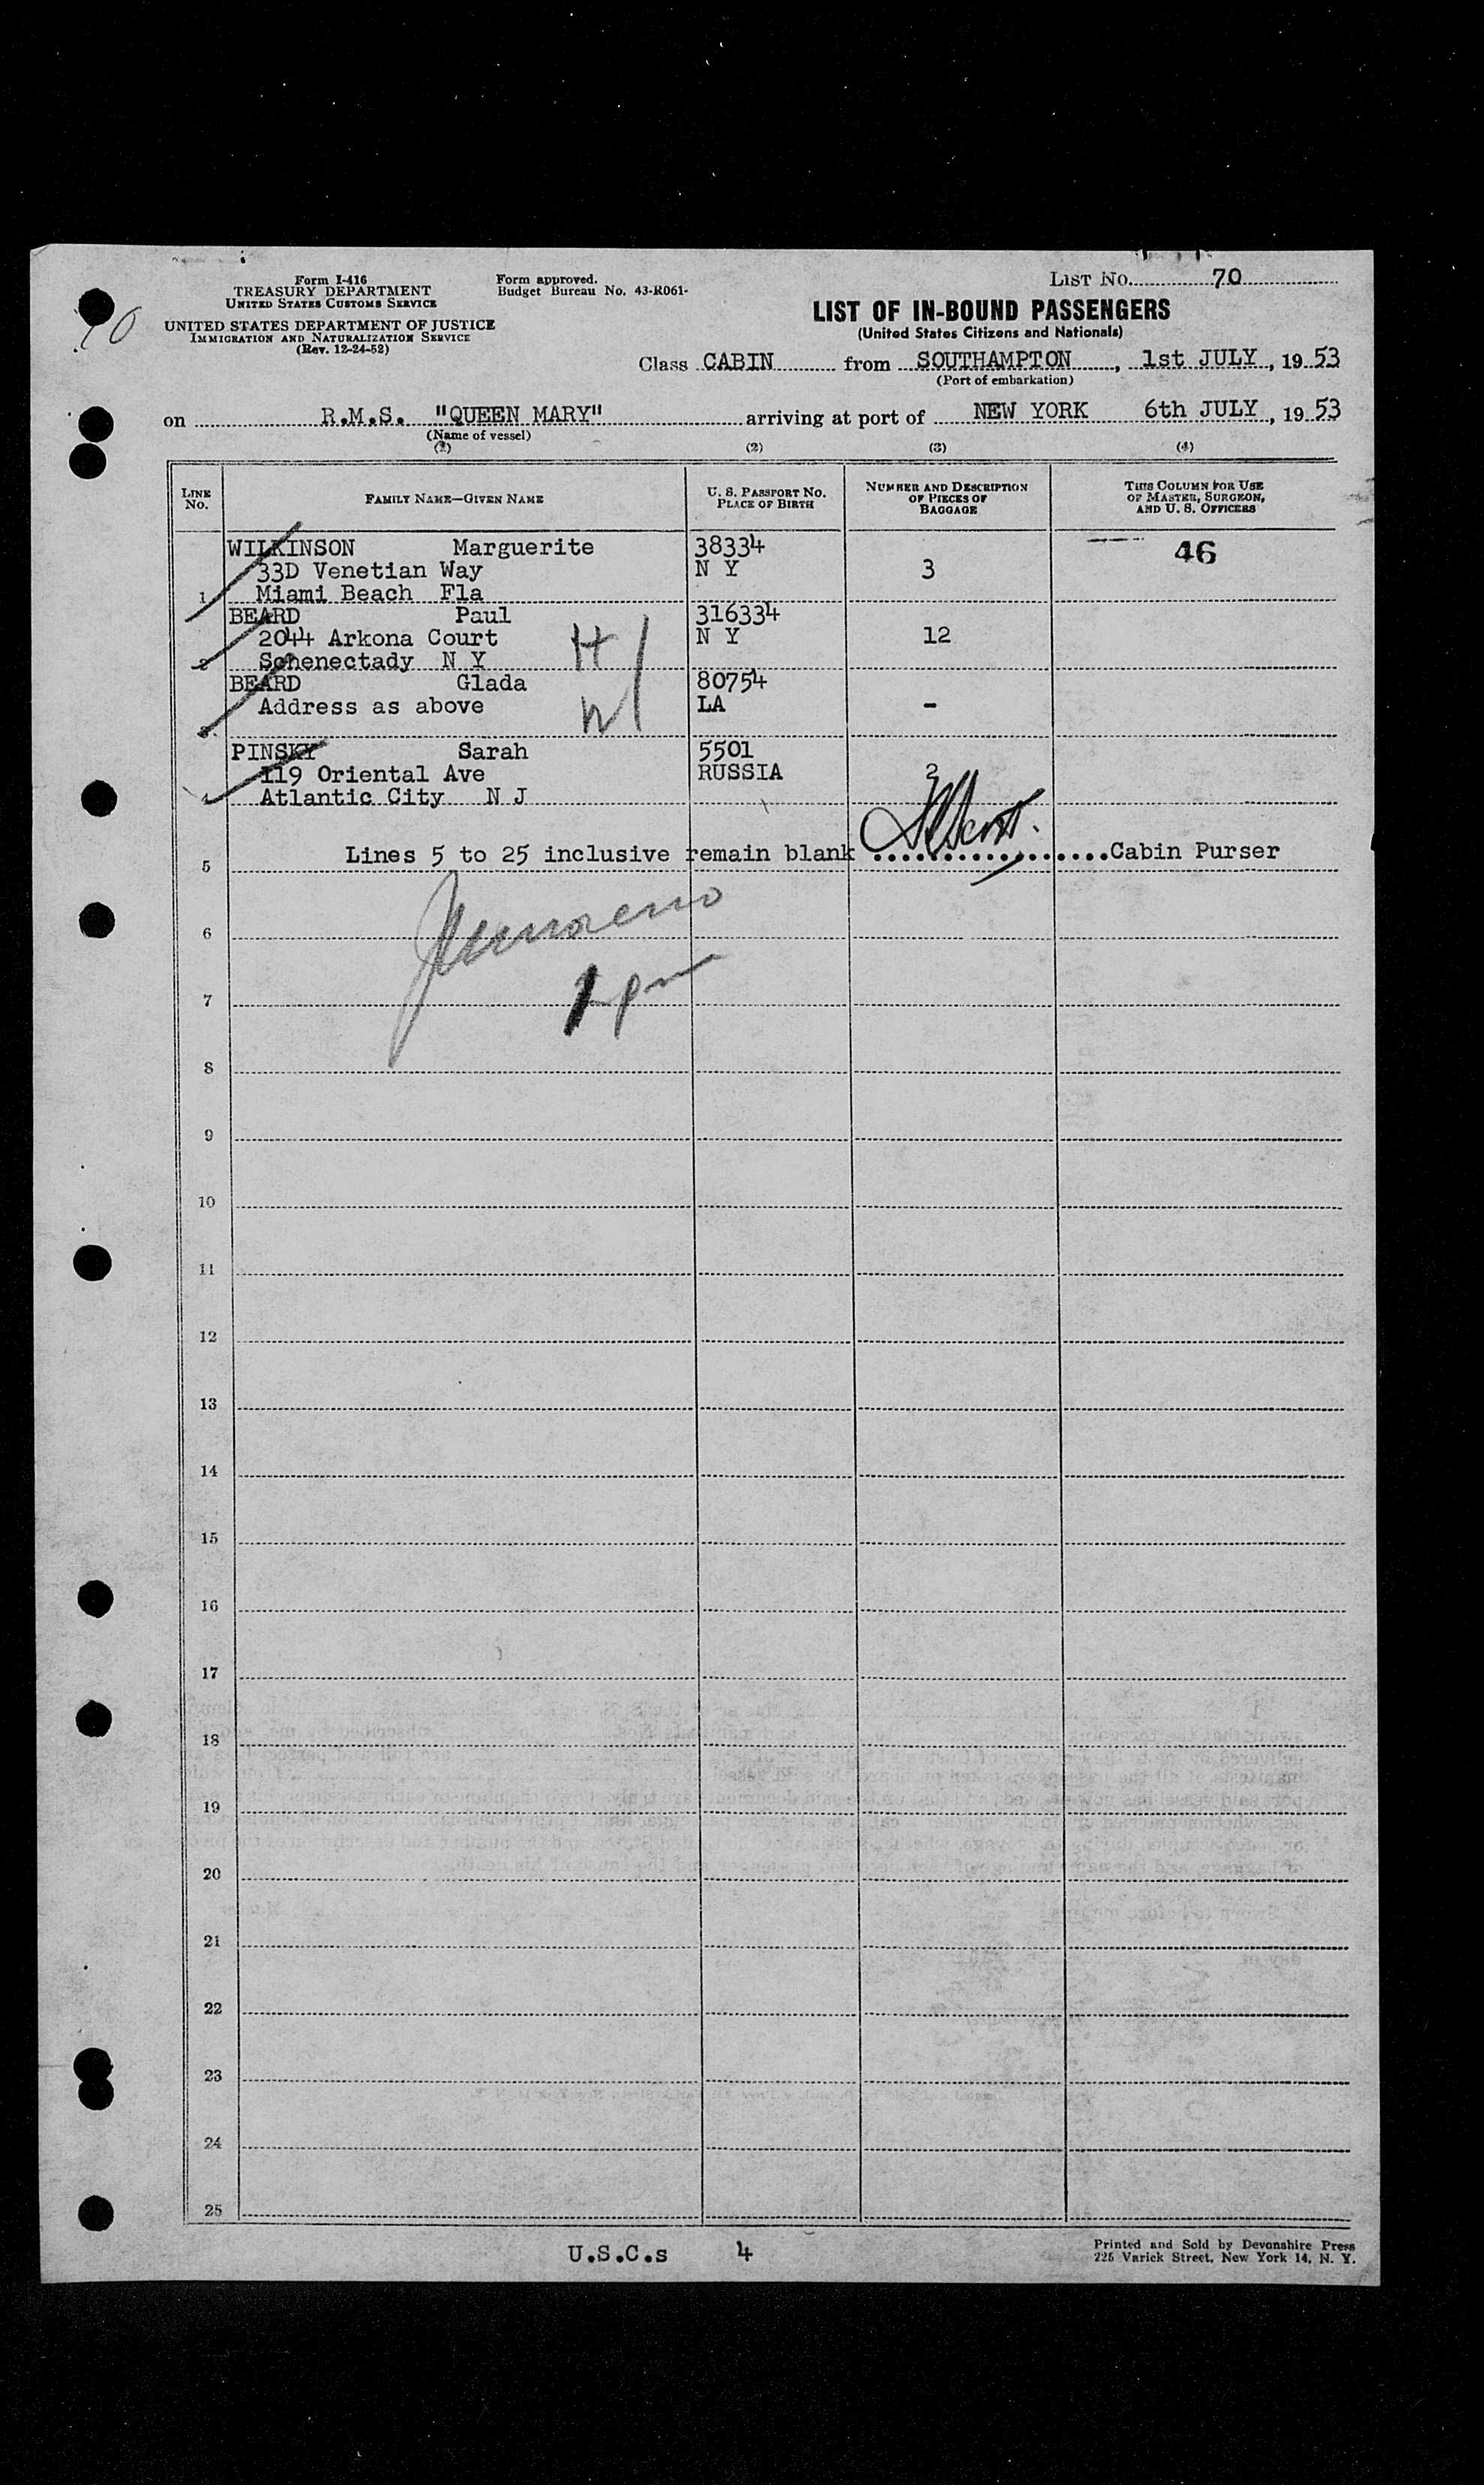 Form I-416
TREASURY DEPARTMENT
UNITED STATES CUSTOMS SERVICE
UNITED STATES DEPARTMENT OF JUSTICE
IMMIGRATION AND NATURALIZATION SERVICE
(Rev. 12-24-52)
Form approved.
Budget Bureau No. 43-R061-
LIST No. 70
LIST OF IN-BOUND PASSENGERS
(United States Citizens and Nationals)
Class CABIN from SOUTHAMPTON, 1st JULY, 19 53
(Port of embarkation)
on R.M.S. "QUEEN MARY" arriving at port of NEW YORK 6th JULY, 19 53
(Name of vessel)
(1) (2) (3) (4)
LINE No. FAMILY NAME—GIVEN NAME U. S. PASSPORT No. PLACE OF BIRTH NUMBER AND DESCRIPTION OF PIECES OF BAGGAGE THIS COLUMN FOR USE OF MASTER, SURGEON, AND U. S. OFFICERS
WILKINSON Marguerite 38334 46
33D Venetian Way N Y 3
1 Miami Beach Fla
BEARD Paul 316334
2044 Arkona Court H N Y 12
2 Schenectady N Y
BEARD Glada 80754
Address as above W LA -
3
PINSKY Sarah 5501
119 Oriental Ave RUSSIA 2
4 Atlantic City N J
5 Lines 5 to 25 inclusive remain blank ..................Cabin Purser
6
7
8
9
10
11
12
13
14
15
16
17
18
19
20
21
22
23
24
25
U.S.C.s 4
Printed and Sold by Devonshire Press
225 Varick Street, New York 14, N. Y.